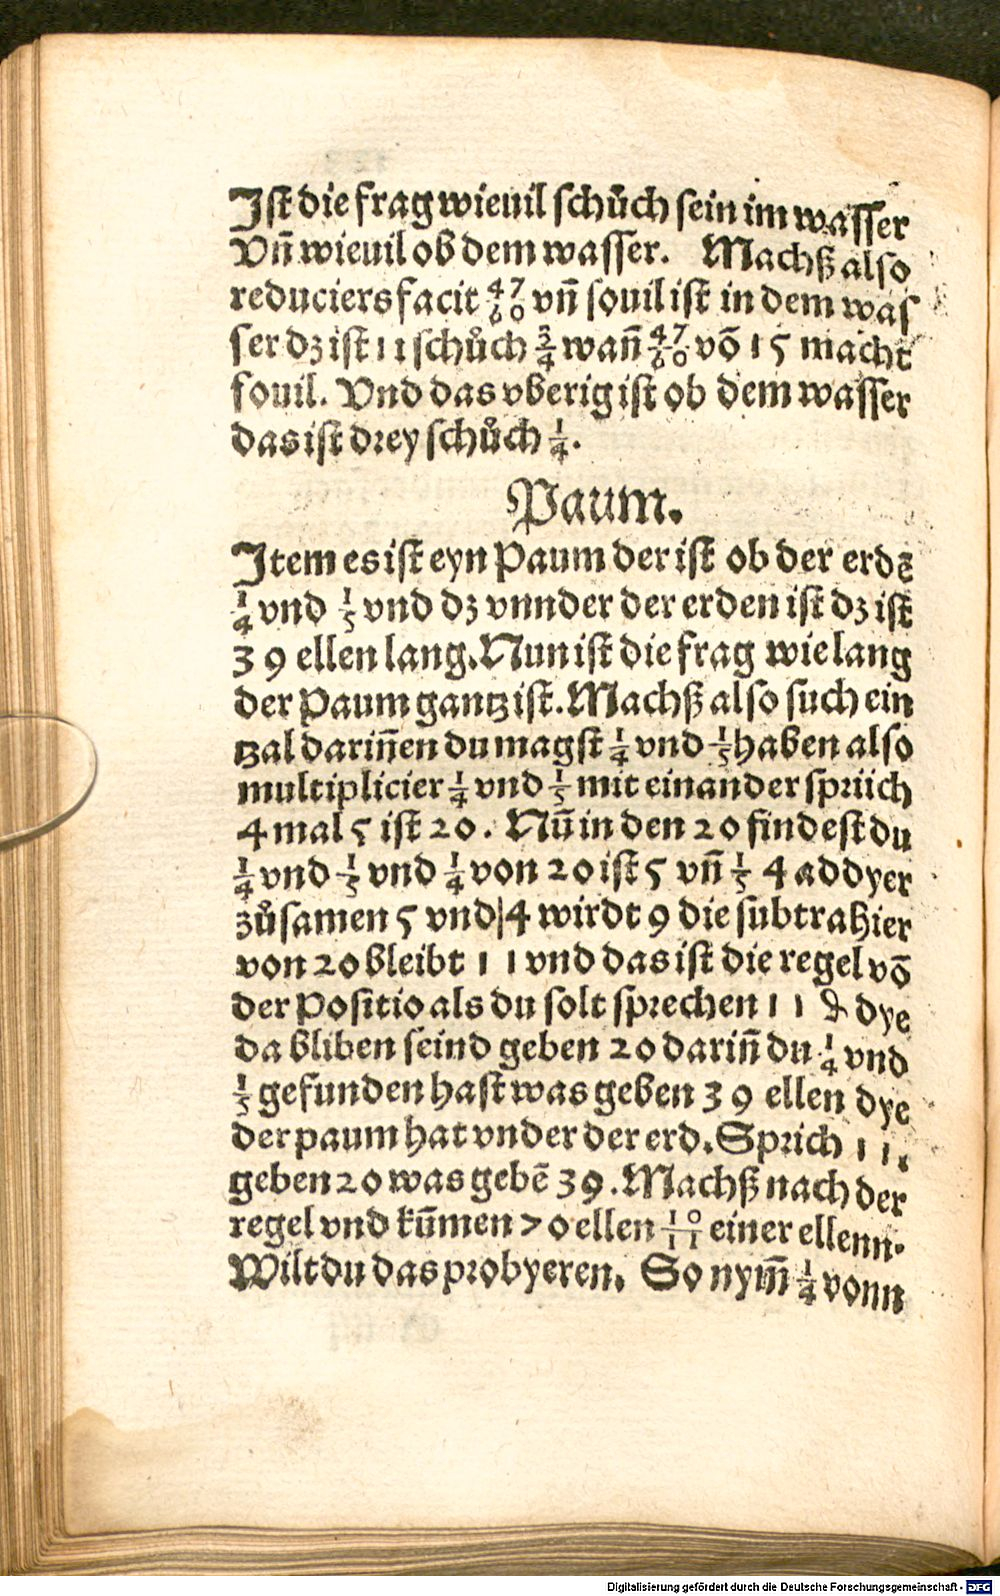 Jſt die frag wieuil ſchůch ſein im waſſer
Vñ wieuil ob dem waſſer. Machß alſo
reduciers facit 47/60 vñ ſouil iſt in dem waſ
ſer dz iſt 11 ſchůch 3/4 wañ 47/60 võ 15 macht
ſouil. Vnd das vberig iſt ob dem waſſer
das iſt drey ſchůch 1/4.
Paum.
Jtem es iſt eyn Paum der iſt ob der erdẽ
1/4 vnd 1/5 vnd dz vnnder der erden iſt dz iſt
39 ellen lang. Nun iſt die frag wie lang
der Paum gantz iſt. Machß alſo ſuch ein
tzal dariñen du magſt 1/4 vnd 1/5 haben alſo
multiplicier 1/4 vnd 1/5 mit einander ſpriich
4 mal 5 iſt 20. Nũ in den 20 findeſt du
1/4 vnd 1/5 vnd 1/4 von 20 iſt 5 vñ 1/5 4 addyer
zůſamen 5 vnd 4 wirdt 9 die ſubtrahier
von 20 bleibt 11 vnd das iſt die regel võ
der Poſitio als du ſolt ſprechen 11 dye
da bliben ſeind geben 20 dariñ du 1/4 vnd
1/5 gefunden haſt was geben 39 ellen dye
der paum hat vnder der erd. Sprich 11.
geben 20 was gebẽ 39. Machß nach der
regel vnd kũmen 70 ellen 10/11 einer ellenn.
Wilt du das probyeren. So nym̃ 1/4 vonn
Digitalisierung gefördert durch die Deutsche Forschungsgemeinschaft - DFG